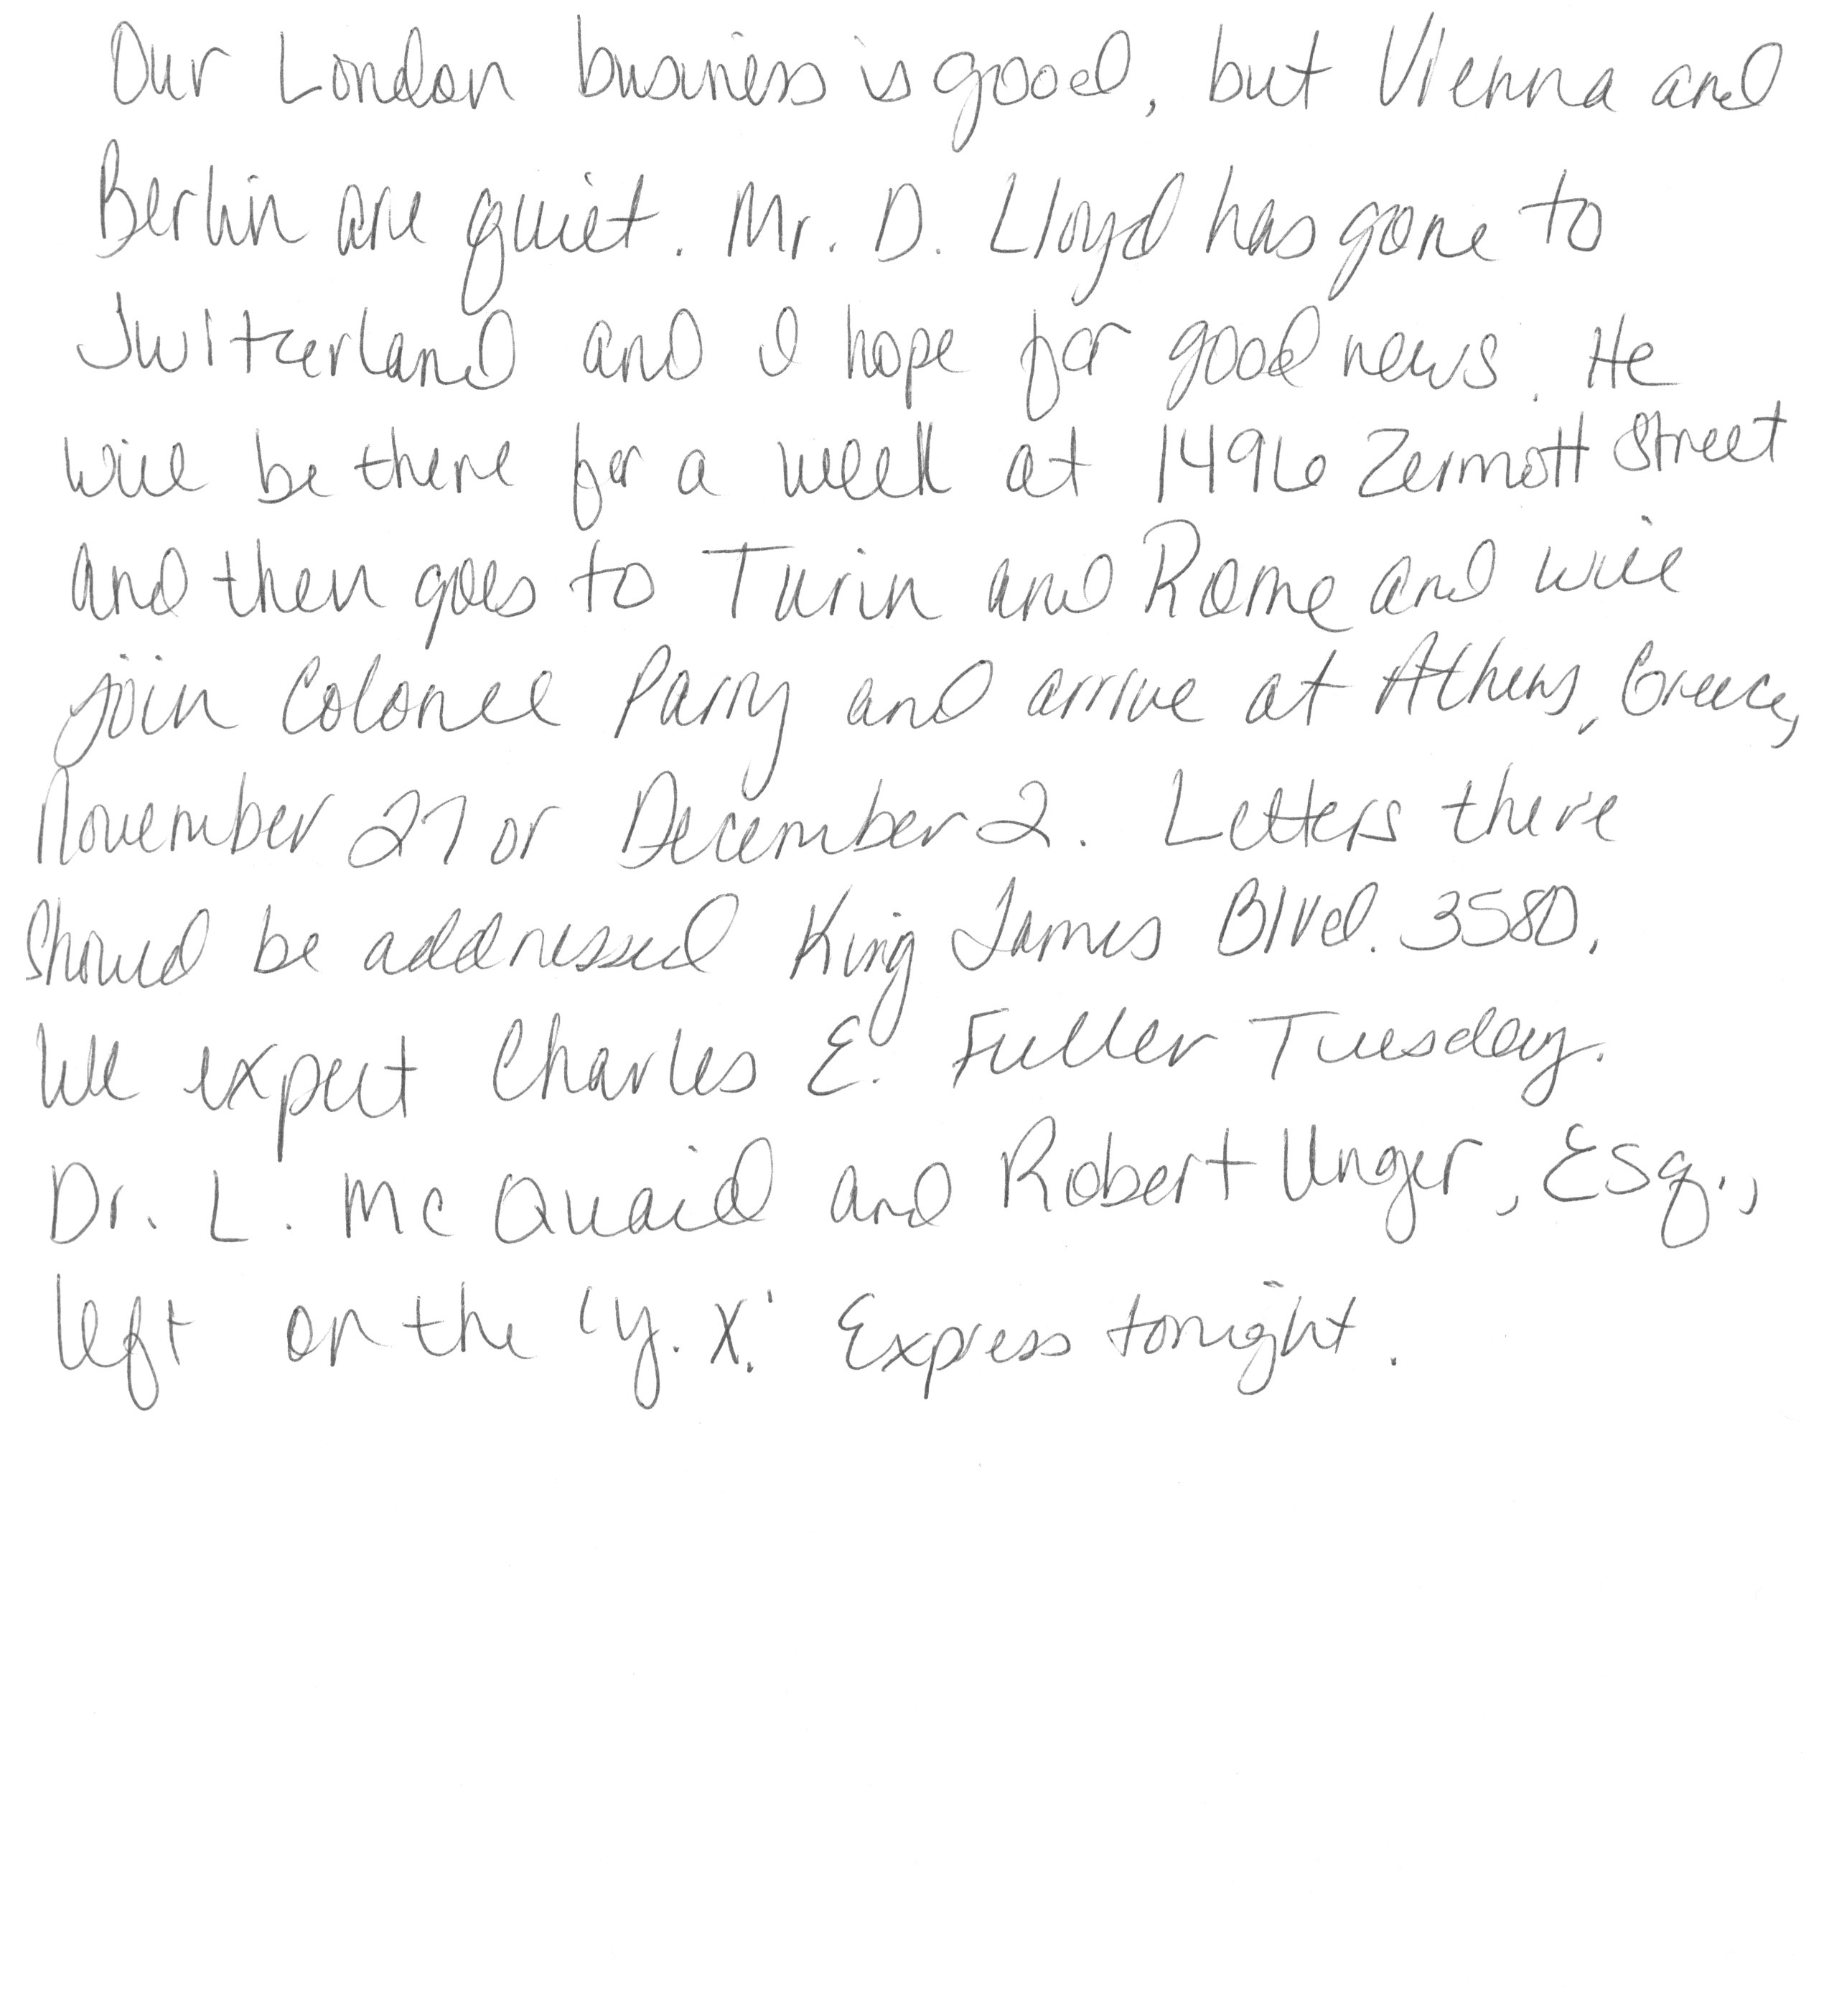 Our London business is good, but Vienna and
Berlin are quiet. Mr. D. Lloyd has gone to
Switzerland and I hope for good news. He
will be there for a week at 1496 Zermott Street
and then goes to Turin and Rome and will
join Colonel Parry and arrive at Athens, Greece,
November 27 or December 2. Letters there
should be addressed King James Blvd. 3580.
We expect Charles E. Fuller Tuesday.
Dr. L. McQuaid and Robert Unger, Esq.,
left on the 'Y.X.' Express tonight.